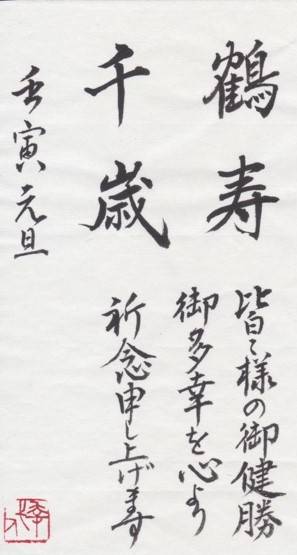 鶴寿
千歳
皆々様の御健勝
御多幸を心より
祈念申し上げます
壬寅元旦